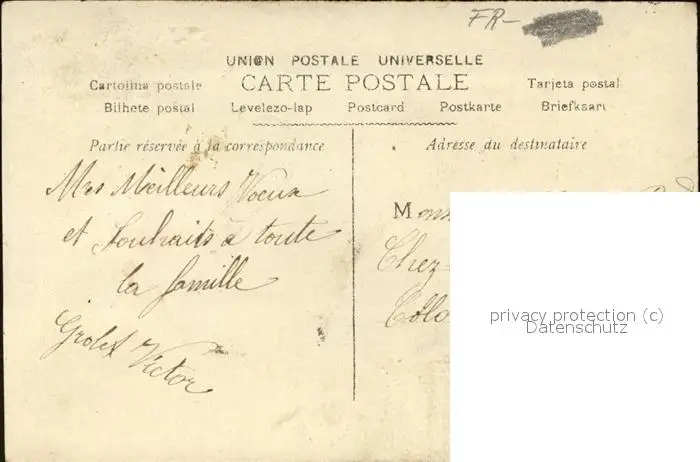 FR-
UNION POSTALE UNIVERSELLE
CARTE POSTALE
Cartolina postale
Tarjeta postal
Bilhete postal Levelezo-lap Postcard Postkarte Briefkaart
Partie réservée à la correspondance
Adresse du destinataire
Mes Meilleurs Voeux
et Souhaits à toute
la famille
Victor
M
Chez
privacy protection (c)
Datenschutz